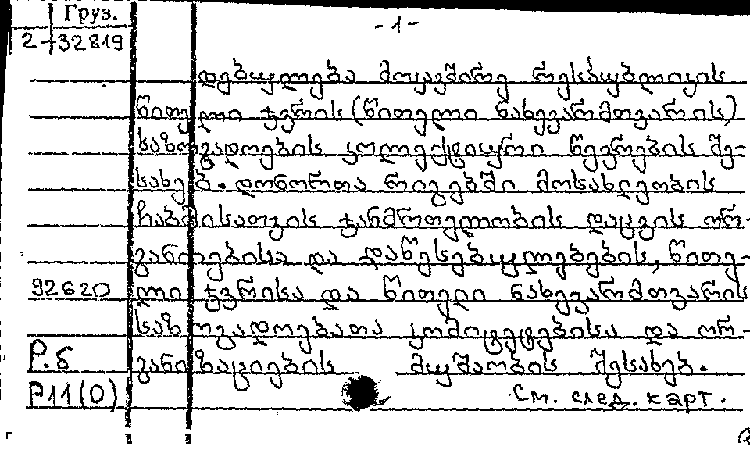 Груз.
-1-
2-32819
დებულება მოკავშირე რესპუბლიკის
წითელი ჯვრის (წითელი ნახევარმთვარის)
საზოგადოების კოლექტიური წევრების შე-
სახებ. დონორთა რიგებში მოსახლეობის
ჩაბმისათვის ჯანმრთელობის დაცვის ორ-
განოებისა და დაწესებულებების, წითე-
92620 ლი ჯვრისა და წითელი ნახევარმთვარის
საზოგადოებათა კომიტეტებისა და ორ-
Р.б განიზაციების მუშაობის შესახებ.
Р11(0) См. след. карт.